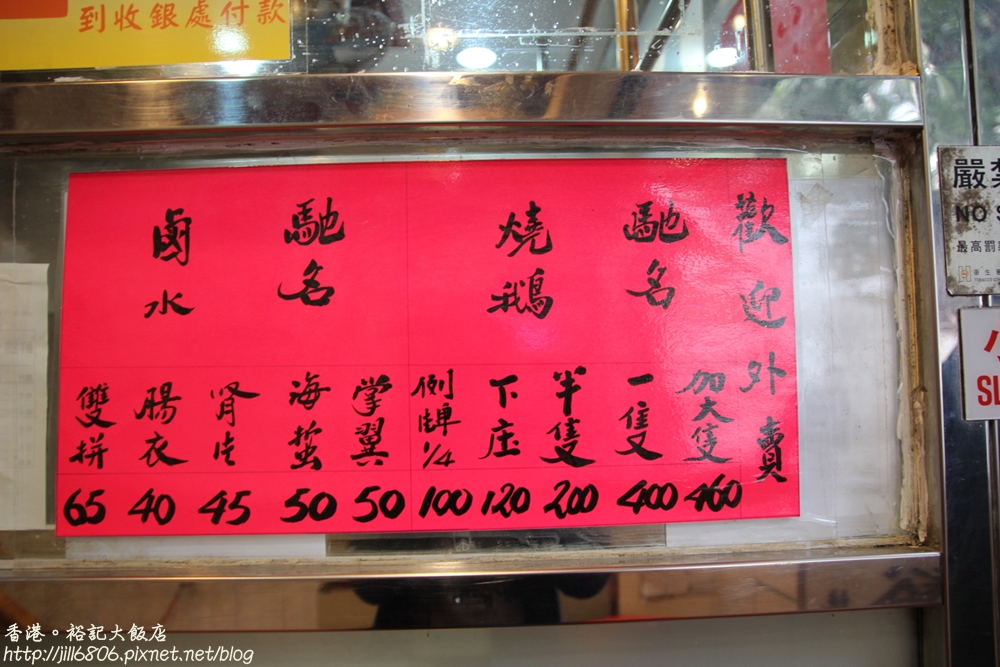 到收銀處付款
歡迎外賣
馳名
燒鵝
加大隻
460
一隻
400
半隻
200
下庄
120
例牌
1/4
100
馳名
鹵水
掌翼
50
海蜇
50
腎片
45
腸衣
40
雙拼
65
嚴禁
NO S
最高罰
小
SL
香港。裕記大飯店
http://jill6806.pixnet.net/blog